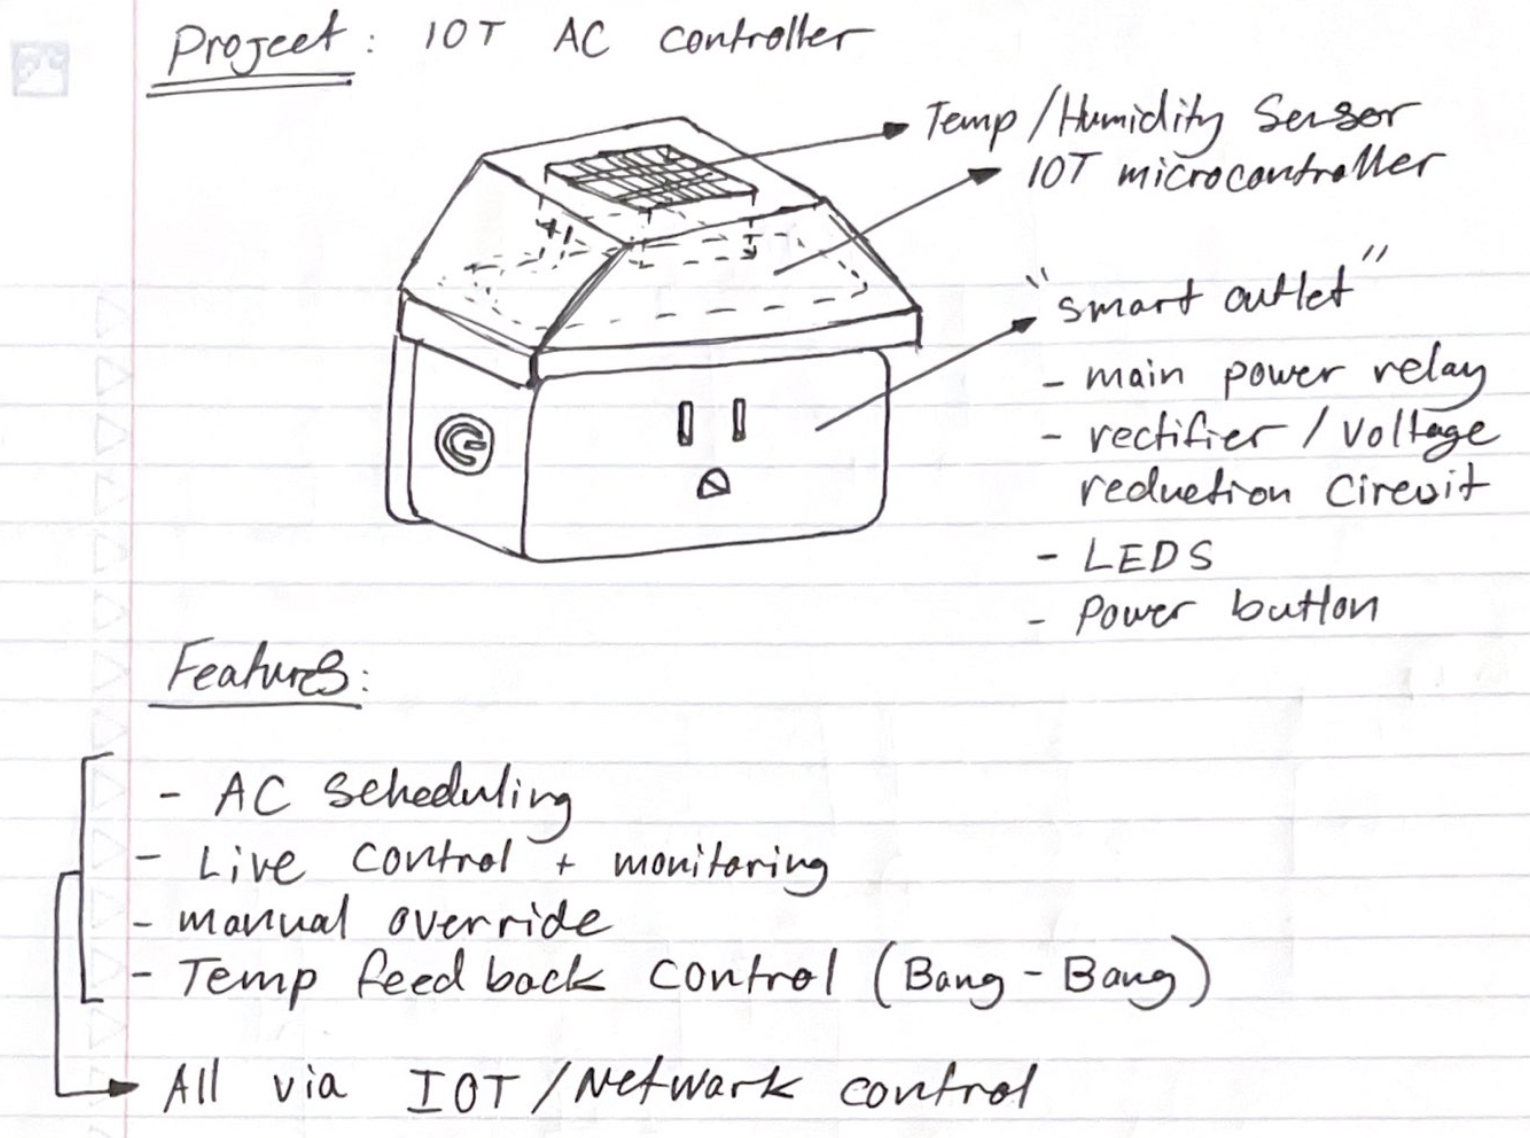 Project: IOT AC controller
Temp/Humidity Sensor
IOT microcontroller
"smart outlet"
- main power relay
- rectifier / voltage
reduction circuit
- LEDS
- Power button
Features:
- AC scheduling
- Live control + monitoring
- manual override
- Temp feedback control (Bang-Bang)
All via IOT/Network control